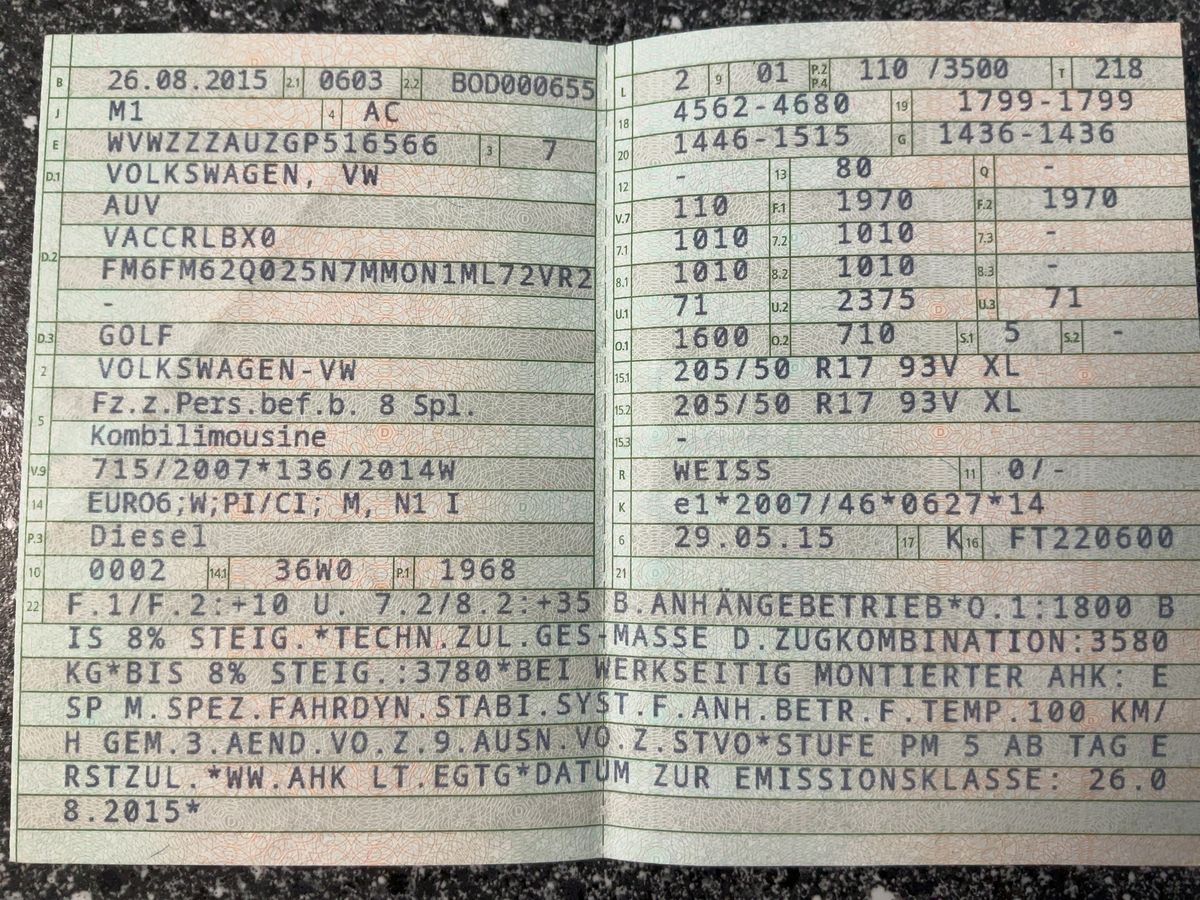 B 26.08.2015 2.1 0603 2.2 BOD000655
J M1 4 AC
E WVWZZZAUZGP516566 3 7
D.1 VOLKSWAGEN, VW
AUV
D.2 VACCRLBX0
FM6FM62Q025N7MMON1ML72VR2
-
D.3 GOLF
2 VOLKSWAGEN-VW
5 Fz.z.Pers.bef.b. 8 Spl.
Kombilimousine
V.9 715/2007*136/2014W
14 EURO6;W;PI/CI; M, N1 I
P.3 Diesel
10 0002 14.1 36W0 P.1 1968
L 2 9 01 P.2 P.4 110 /3500 T 218
18 4562-4680 19 1799-1799
20 1446-1515 G 1436-1436
12 - 13 80 Q -
V.7 110 F.1 1970 F.2 1970
7.1 1010 7.2 1010 7.3 -
8.1 1010 8.2 1010 8.3 -
U.1 71 U.2 2375 U.3 71
O.1 1600 O.2 710 S.1 5 S.2 -
15.1 205/50 R17 93V XL
15.2 205/50 R17 93V XL
15.3 -
R WEISS 11 0/-
K e1*2007/46*0627*14
6 29.05.15 17 K 16 FT220600
21
22 F.1/F.2:+10 U. 7.2/8.2:+35 B.ANHÄNGEBETRIEB*O.1:1800 B
IS 8% STEIG.*TECHN.ZUL.GES-MASSE D.ZUGKOMBINATION:3580
KG*BIS 8% STEIG.:3780*BEI WERKSEITIG MONTIERTER AHK: E
SP M.SPEZ.FAHRDYN.STABI.SYST.F.ANH.BETR.F.TEMP.100 KM/
H GEM.3.AEND.VO.Z.9.AUSN.VO.Z.STVO*STUFE PM 5 AB TAG E
RSTZUL.*WW.AHK LT.EGTG*DATUM ZUR EMISSIONSKLASSE: 26.0
8.2015*